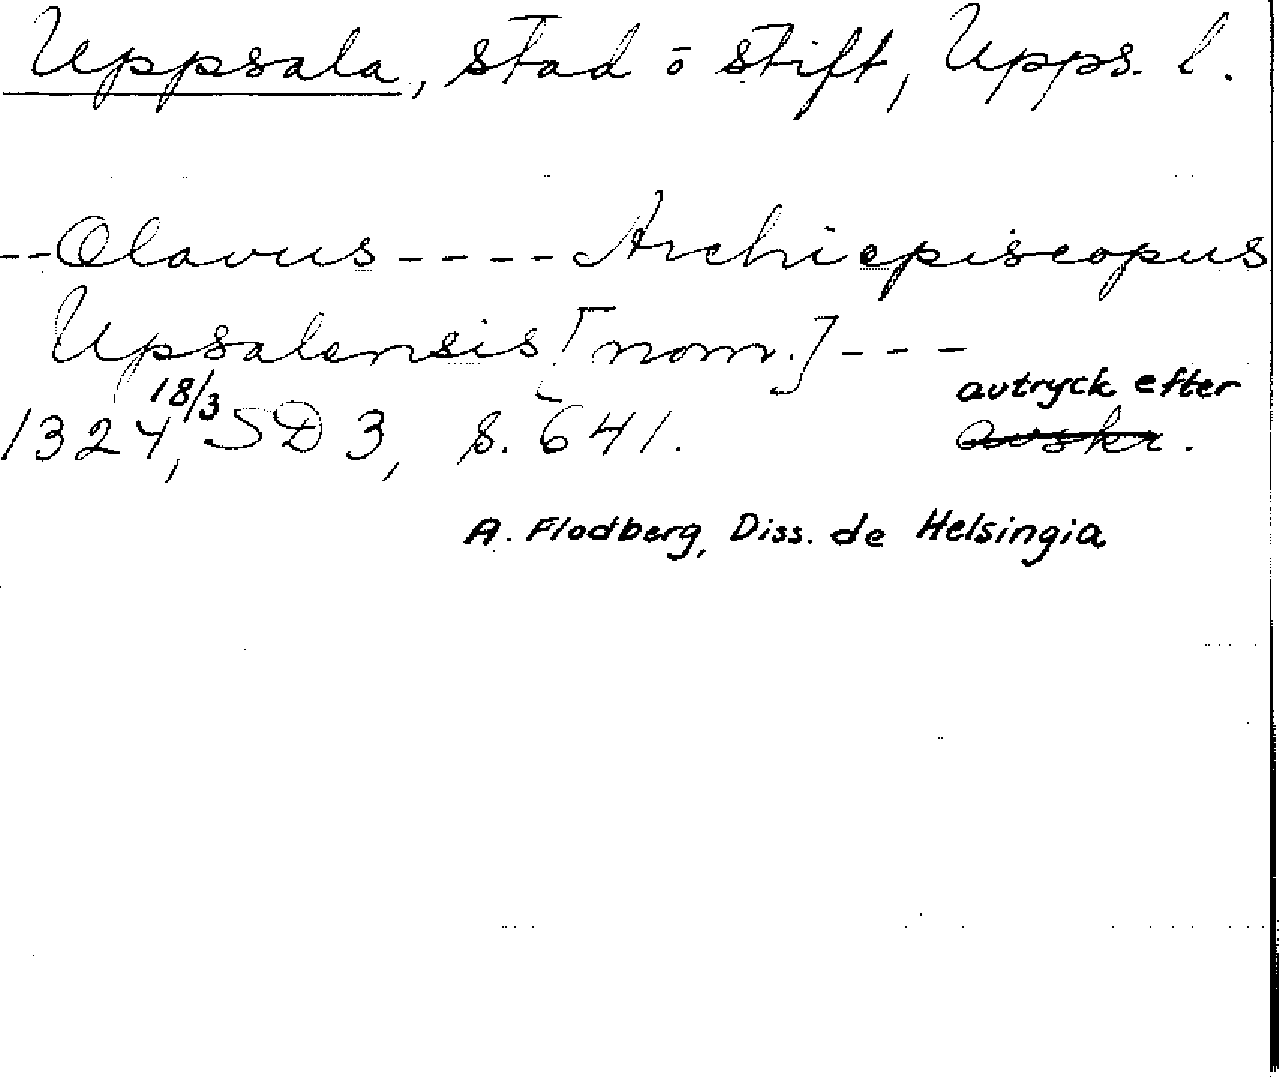 Uppsala, stad ō stift, Upps. l.
--Olavus----Archiepiscopus
Upsalensis [nom.]---
18/3 avtryck efter
1324, SD 3, s. 641. avskr.
A. Flodberg, Diss. de Helsingia